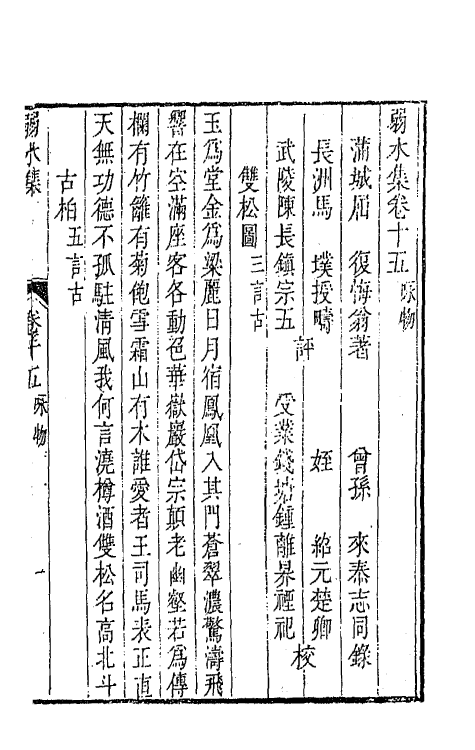 弱水集卷十五 咏物
蒲城屈　復悔翁著　曾孫　來泰志同錄
長洲馬　墣授疇　　姪　紹元楚卿
評　校
武陵陳長鎮宗五　受業錢塘鍾離昦禋祀
雙松圖 三言古
玉爲堂金爲梁麗日月宿鳳凰入其門蒼翠濃驚濤飛
響在空滿座客各動色華嶽巖岱宗顛老幽壑若爲傳
欄有竹籬有菊飽雪霜山有木誰愛者王司馬表正直
天無功德不孤駐清風我何言澆樽酒雙松名高北斗
古柏 五言古
弱水集　卷十五 咏物　一